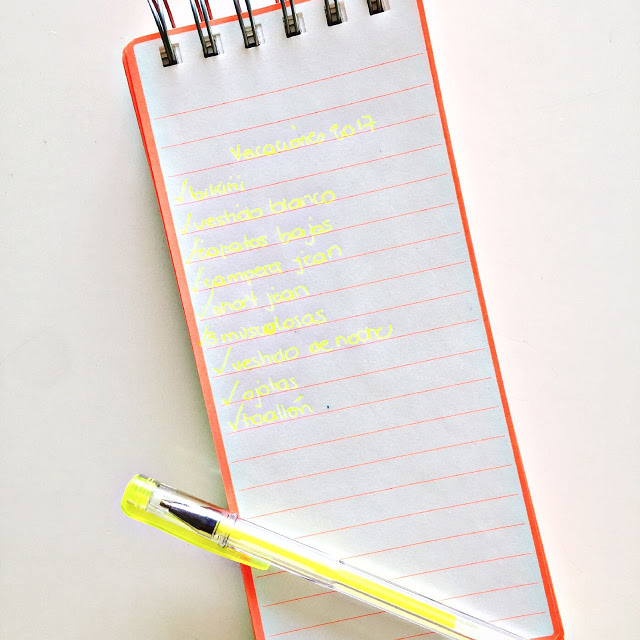 Vacaciones 2017
✓bikini
✓vestido blanco
✓zapatos bajos
✓campera jean
✓short jean
3 musculosas
✓vestido de noche
✓ojotas
✓toallón